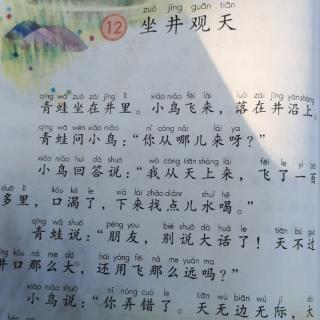 zuò jǐng guān tiān
12 坐井观天
qīng wā zuò zài jǐng lǐ xiǎo niǎo fēi lái luò zài jǐng yán shàng
青蛙坐在井里。小鸟飞来，落在井沿上。
qīng wā wèn xiǎo niǎo nǐ cóng nǎr lái ya
青蛙问小鸟：“你从哪儿来呀？”
xiǎo niǎo huí dá shuō wǒ cóng tiān shàng lái fēi le yì bǎi
小鸟回答说：“我从天上来，飞了一百
duō lǐ kǒu kě le xià lái zhǎo diǎnr shuǐ hē
多里，口渴了，下来找点儿水喝。”
qīng wā shuō péng you bié shuō dà huà le tiān bú guò
青蛙说：“朋友，别说大话了！天不过
jǐng kǒu nà me dà hái yòng fēi nà me yuǎn ma
井口那么大，还用飞那么远吗？”
xiǎo niǎo shuō nǐ nòng cuò le tiān wú biān wú jì dà
小鸟说：“你弄错了。天无边无际，大